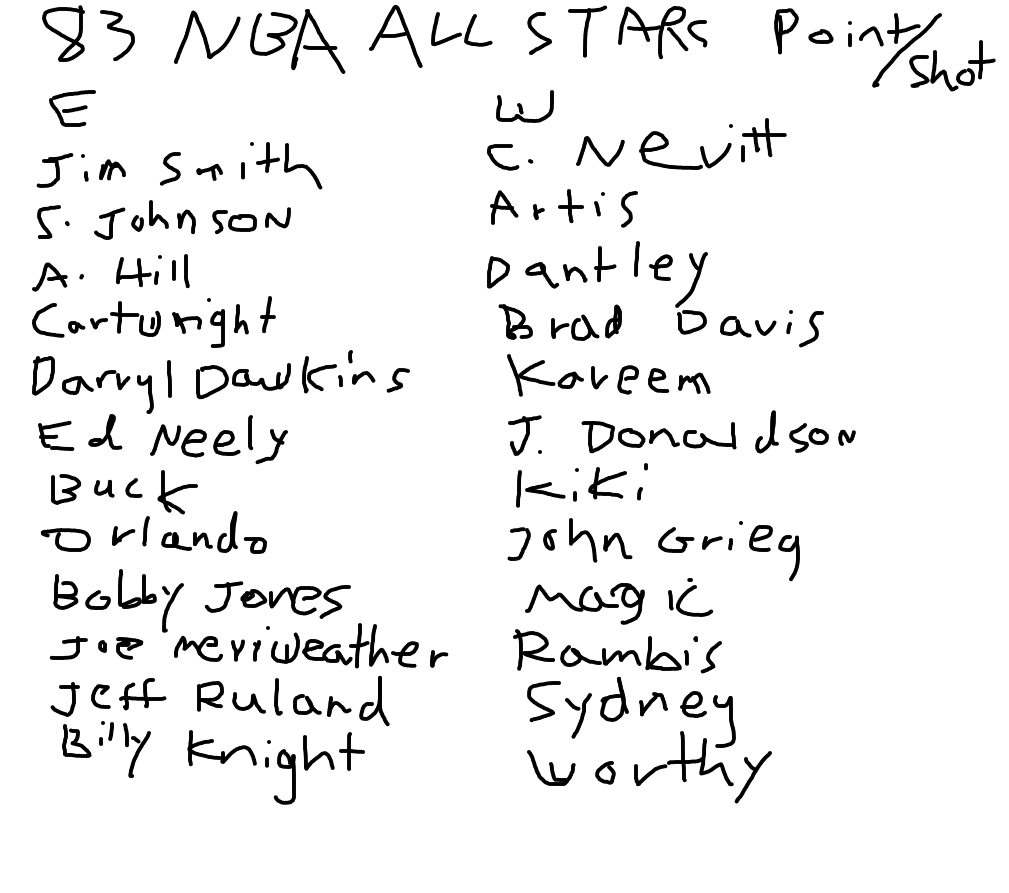 83 NBA ALL STARS Point/Shot
E
Jim Smith
S. Johnson
A. Hill
Cartwright
Darryl Dawkins
Ed Neely
Buck
Orlando
Bobby Jones
Joe Meriweather
Jeff Ruland
Billy Knight
W
C. Nevitt
Artis
Dantley
Brad Davis
Kareem
J. Donaldson
Kiki
John Grieg
Magic
Rambis
Sydney
Worthy